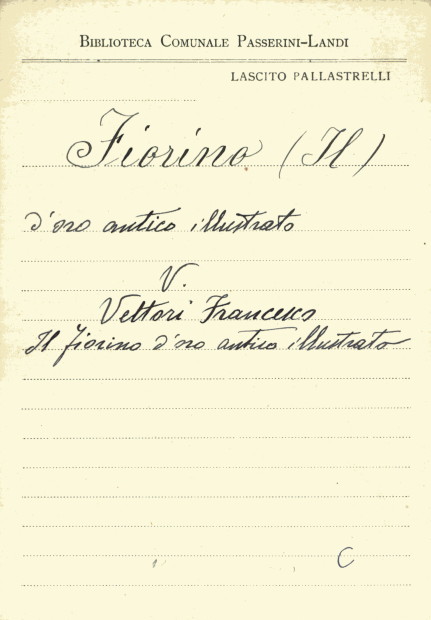 BIBLIOTECA COMUNALE PASSERINI-LANDI
LASCITO PALLASTRELLI
Fiorino (Il)
d'oro antico illustrato
V.
Vettori Francesco
Il fiorino d'oro antico illustrato
C